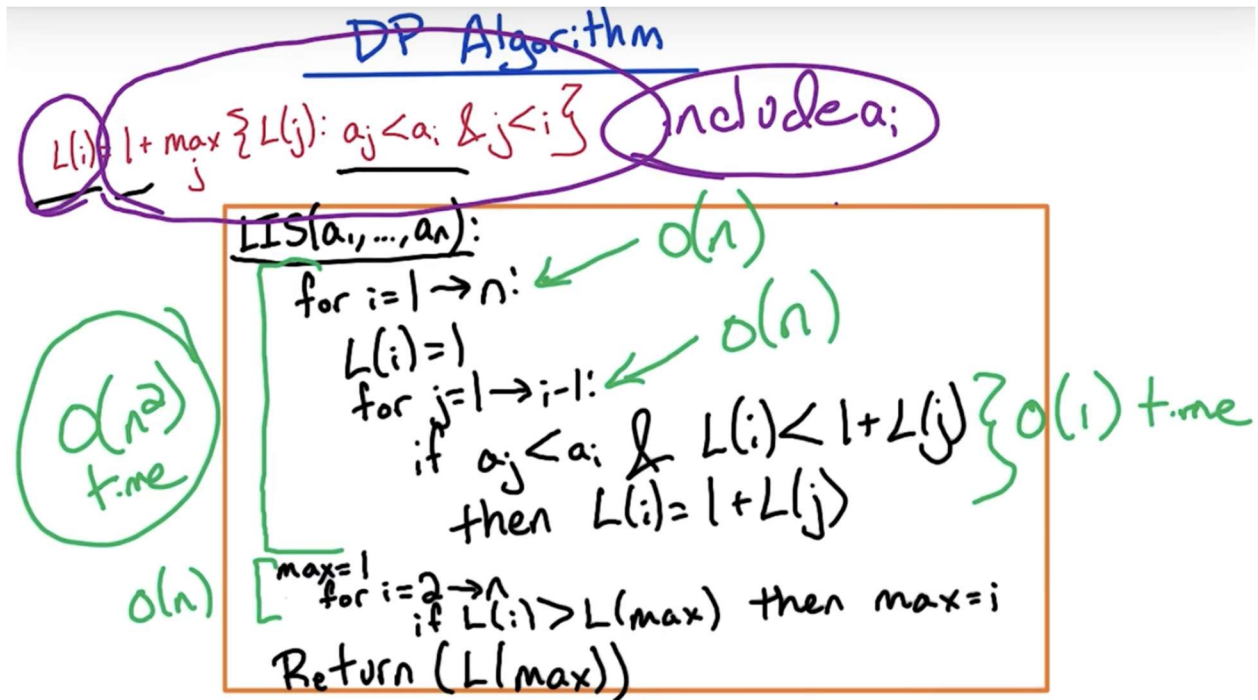 DP Algorithm
L(i) = 1 + max_j {L(j): a_j < a_i & j < i} include a_i
LIS(a_1, ..., a_n):
O(n)
for i = 1 → n:
O(n)
L(i) = 1
for j = 1 → i-1:
if a_j < a_i & L(i) < 1 + L(j) } O(1) time
then L(i) = 1 + L(j)
O(n²)
time
max = 1
O(n) [ for i = 2 → n
if L(i) > L(max) then max = i
Return (L(max))